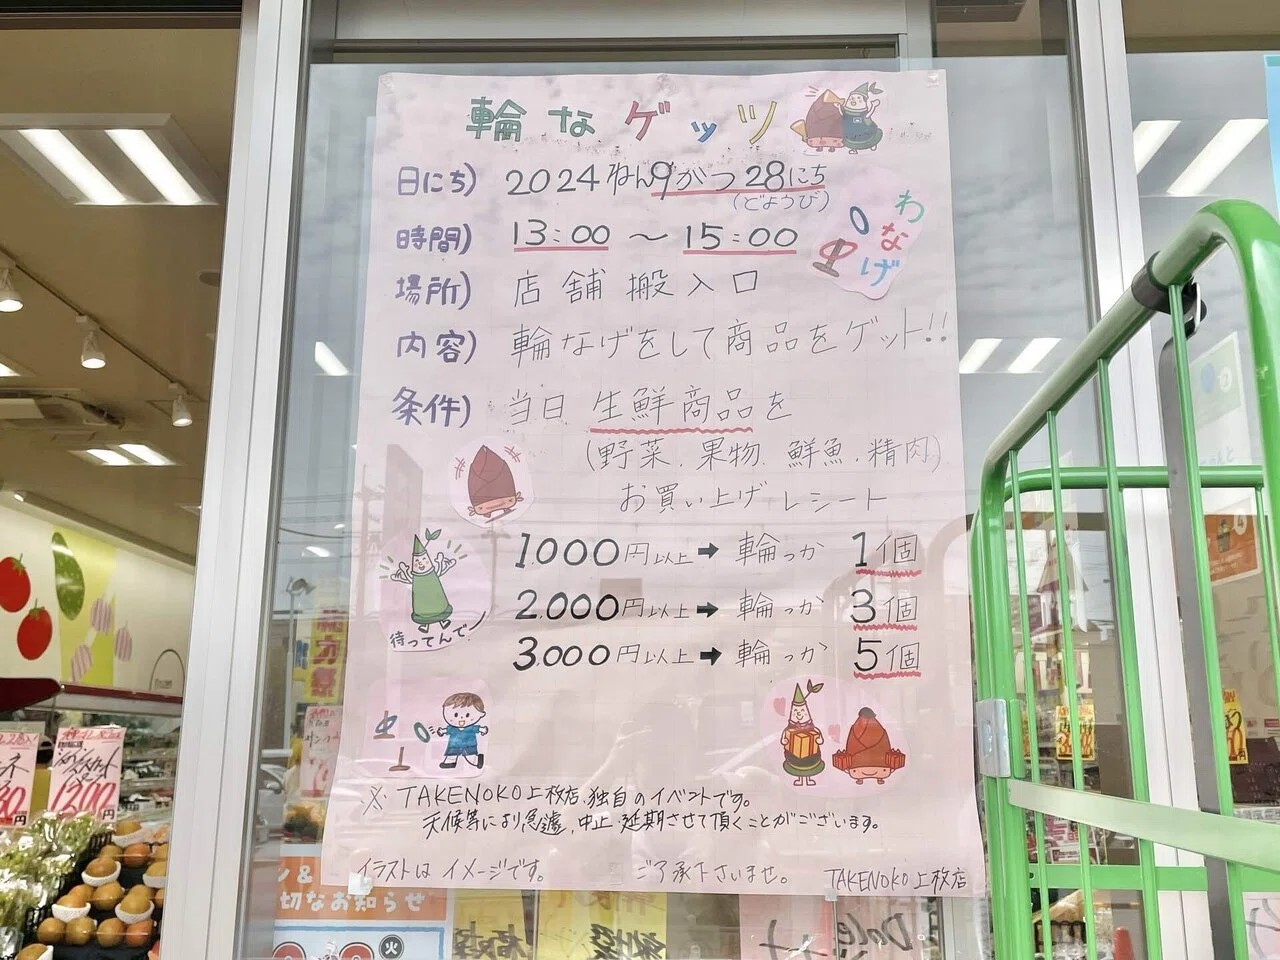 輪なゲッツ
日にち) 2024ねん9がつ28にち
(どようび)
わなげ
時間) 13:00 ～ 15:00
場所) 店舗搬入口
内容) 輪なげをして商品をゲット!!
条件) 当日 生鮮商品を
(野菜.果物.鮮魚.精肉)
お買い上げレシート
1.000円以上➡輪っか 1個
2.000円以上➡輪っか 3個
3.000円以上➡輪っか 5個
待ってんで!
※ TAKENOKO上枚店.独自のイベントです。
天候等により急遽,中止.延期させて頂くことがございます。
イラストは イメージです。 ご了承下さいませ。 TAKENOKO上枚店
切なお知らせ
火
Dole